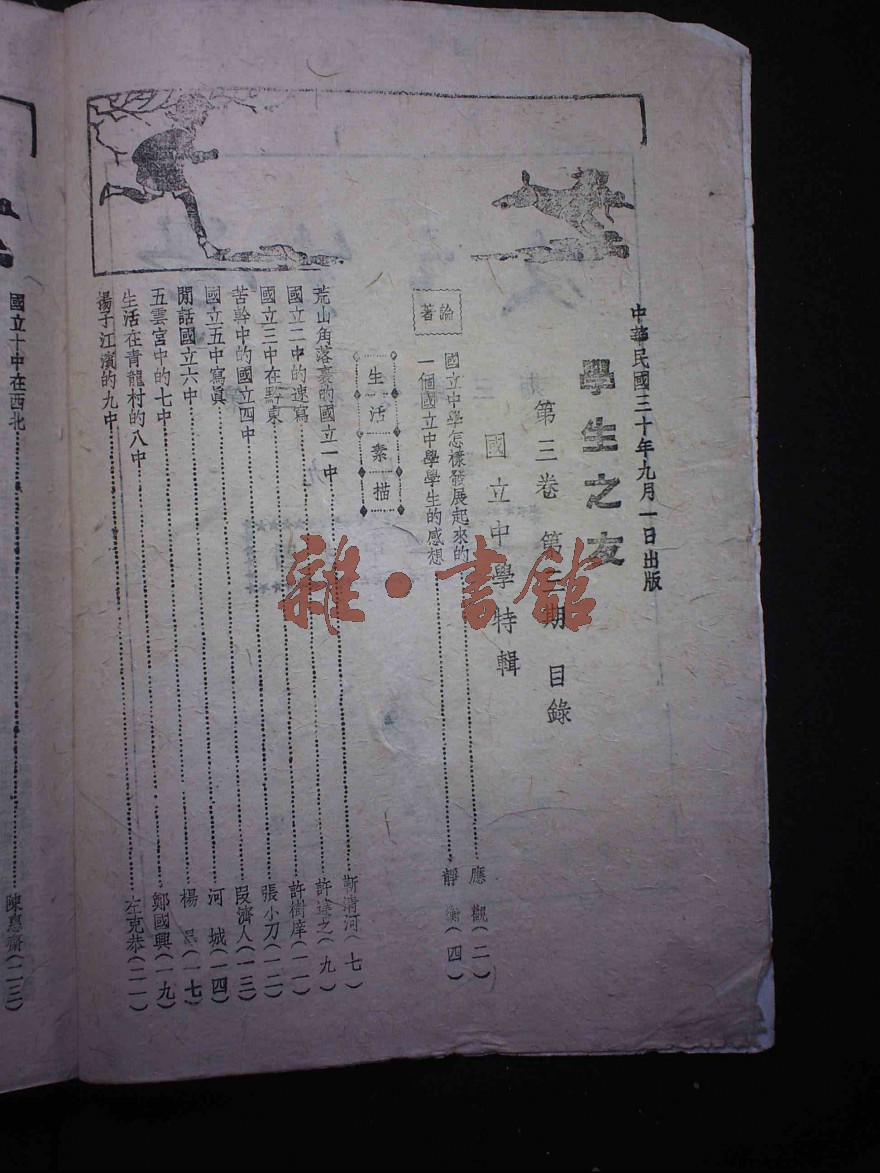 中華民國三十年九月一日出版
學生之友
第三卷 第三期 目錄
國立中學特輯
論著
國立中學怎樣發展起來的 應觀(二)
一個國立中學學生的感想 靜衡(四)
生活素描
荒山角落裏的國立一中 靳清河(七)
國立二中的速寫 許達之(九)
國立三中在黔東 許樹庠(一一)
苦幹中的國立四中 張小刀(一二)
國立五中寫真 段濟人(一三)
閒話國立六中 河城(一四)
五雲宮中的七中 楊(一七)
生活在青龍村的八中 鄭國興(一九)
揚子江濱的九中 左克恭(二一)
國立十中在西北 陳惠齋(二三)
雜·書館